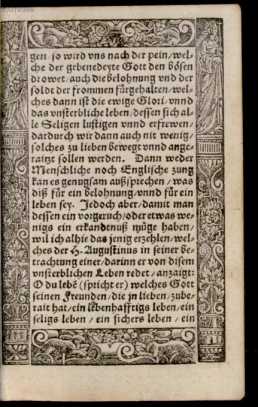 gen so wird vns nach der pein/wel-
che der gebenedeyte Gott den bösen
drowet/auch die belohnung vnd der
sold der frommen fürgehalten/wel-
ches dann ist die ewige Glori/vnnd
das vnsterbliche leben/dessen sich al-
le Seligen lustigen vnnd erfrewen/
dardurch wir dann auch nit wenig/
solches zu lieben bewegt vnnd ange-
raitzt sollen werden. Dann weder
Menschliche noch Englische zung
kan es genugsam außsprechen/was
diß für ein belohnung vnnd für ein
leben sey. Jedoch aber/damit man
dessen ein vorgeruch/oder etwas we-
nigs ein erkandtnuß müge haben/
wil ich alhie das jenig erzehlen/wel-
ches der H. Augustinus in seiner be-
trachtung einer/darinn er von disem
vnsterblichen Leben redet/anzaigt:
O du lebē (spricht er) welches Gott
seinen Freunden/die jn lieben/zube-
rait hat/ein lebenhafftigs leben/ein
seligs leben/ein sichers leben/ein